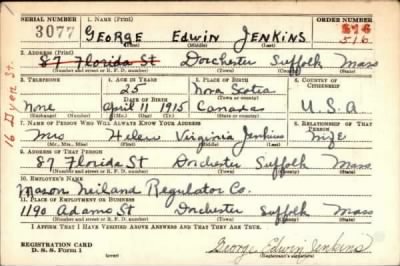 SERIAL NUMBER 1. NAME (Print) ORDER NUMBER
3077 GEORGE Edwin JENKINS 516
(First) (Middle) (Last) 516
2. ADDRESS (Print)
87 Florida St Dorchester Suffolk Mass
(Number and street or R. F. D. number) (Town) (County) (State)
16 St.
3. TELEPHONE 4. AGE IN YEARS 5. PLACE OF BIRTH 6. COUNTRY OF CITIZENSHIP
25 Nova Scotia
DATE OF BIRTH (Town or county)
None April 11 1915 Canada U.S.A
(Exchange) (Number) (Mo.) (Day) (Yr.) (State or country)
7. NAME OF PERSON WHO WILL ALWAYS KNOW YOUR ADDRESS 8. RELATIONSHIP OF THAT PERSON
Mrs Helen Virginia Jenkins Wife
(Mr., Mrs., Miss) (First) (Middle) (Last)
9. ADDRESS OF THAT PERSON
87 Florida St Dorchester Suffolk Mass
(Number and street or R. F. D. number) (Town) (County) (State)
10. EMPLOYER'S NAME
Mason Neiland Regulator Co.
11. PLACE OF EMPLOYMENT OR BUSINESS
1190 Adams St Dorchester Suffolk Mass
(Number and street or R. F. D. number) (Town) (County) (State)
I AFFIRM THAT I HAVE VERIFIED ABOVE ANSWERS AND THAT THEY ARE TRUE.
REGISTRATION CARD
D. S. S. Form 1 George Edwin Jenkins
(over) (Registrant's signature)